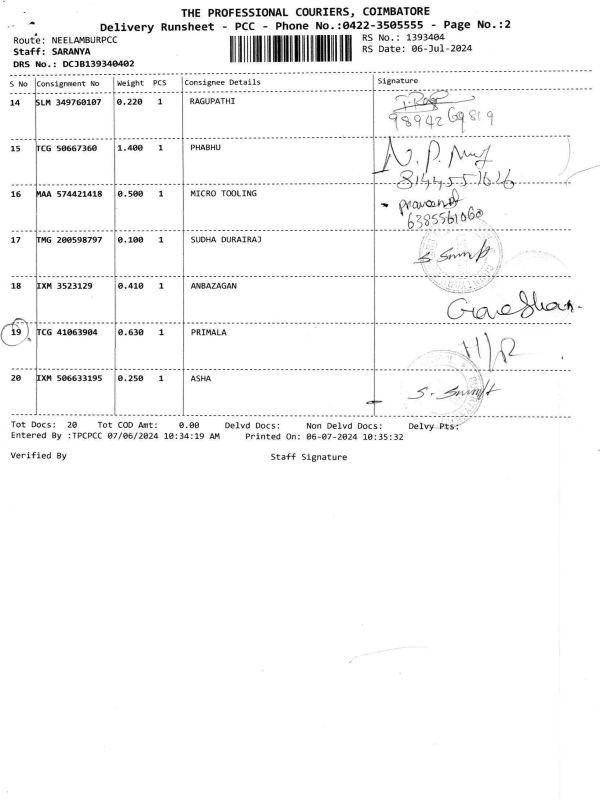 THE PROFESSIONAL COURIERS, COIMBATORE
Delivery Runsheet - PCC - Phone No.:0422-3505555 - Page No.:2
Route: NEELAMBURPCC RS No.: 1393404
Staff: SARANYA RS Date: 06-Jul-2024
DRS No.: DCJB139340402
S No Consignment No Weight PCS Consignee Details Signature
14 SLM 349760107 0.220 1 RAGUPATHI
9894269819
15 TCG 50667360 1.400 1 PHABHU N.P.
8144551616
16 MAA 574421418 0.500 1 MICRO TOOLING
6385561060
17 TMG 200598797 0.100 1 SUDHA DURAIRAJ
18 IXM 3523129 0.410 1 ANBAZAGAN
19 TCG 41063904 0.630 1 PRIMALA
20 IXM 506633195 0.250 1 ASHA
Tot Docs: 20 Tot COD Amt: 0.00 Delvd Docs: Non Delvd Docs: Delvy Pts:
Entered By :TPCPCC 07/06/2024 10:34:19 AM Printed On: 06-07-2024 10:35:32
Verified By Staff Signature